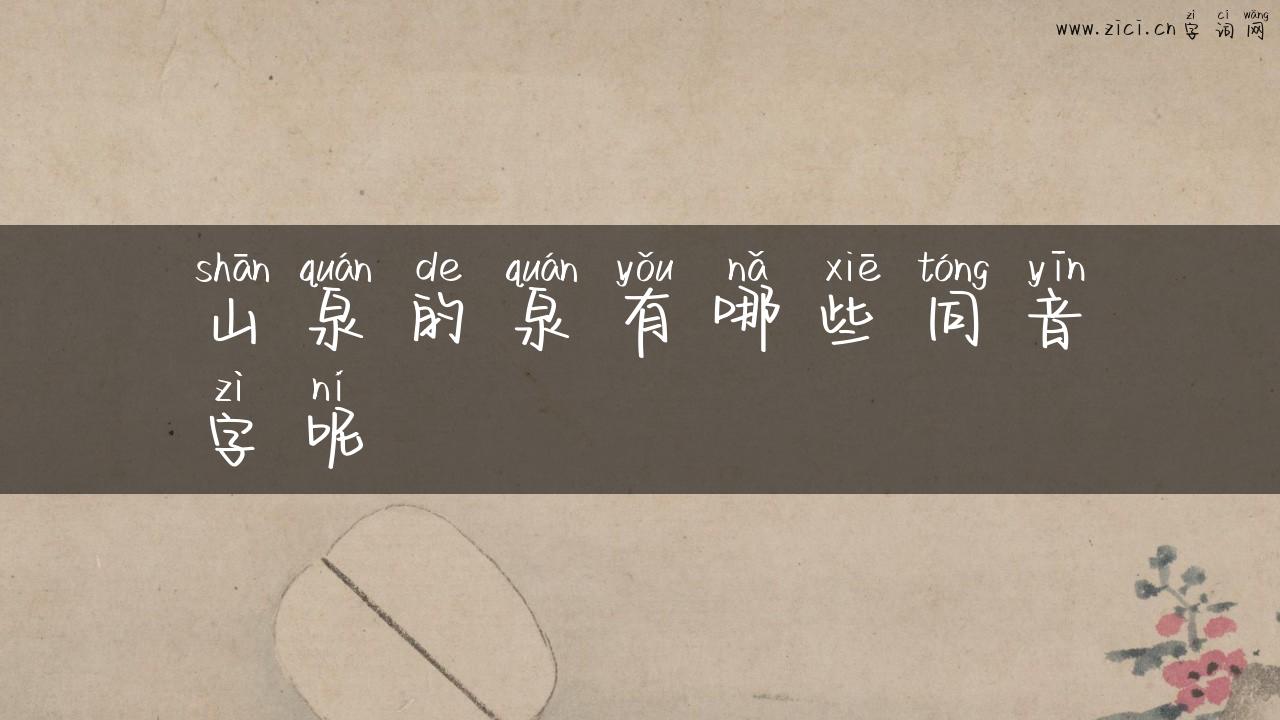 zì cí wǎng
www.zici.cn字词网
shān quán de quán yǒu nǎ xiē tóng yīn
山泉的泉有哪些同音
zì ní
字呢